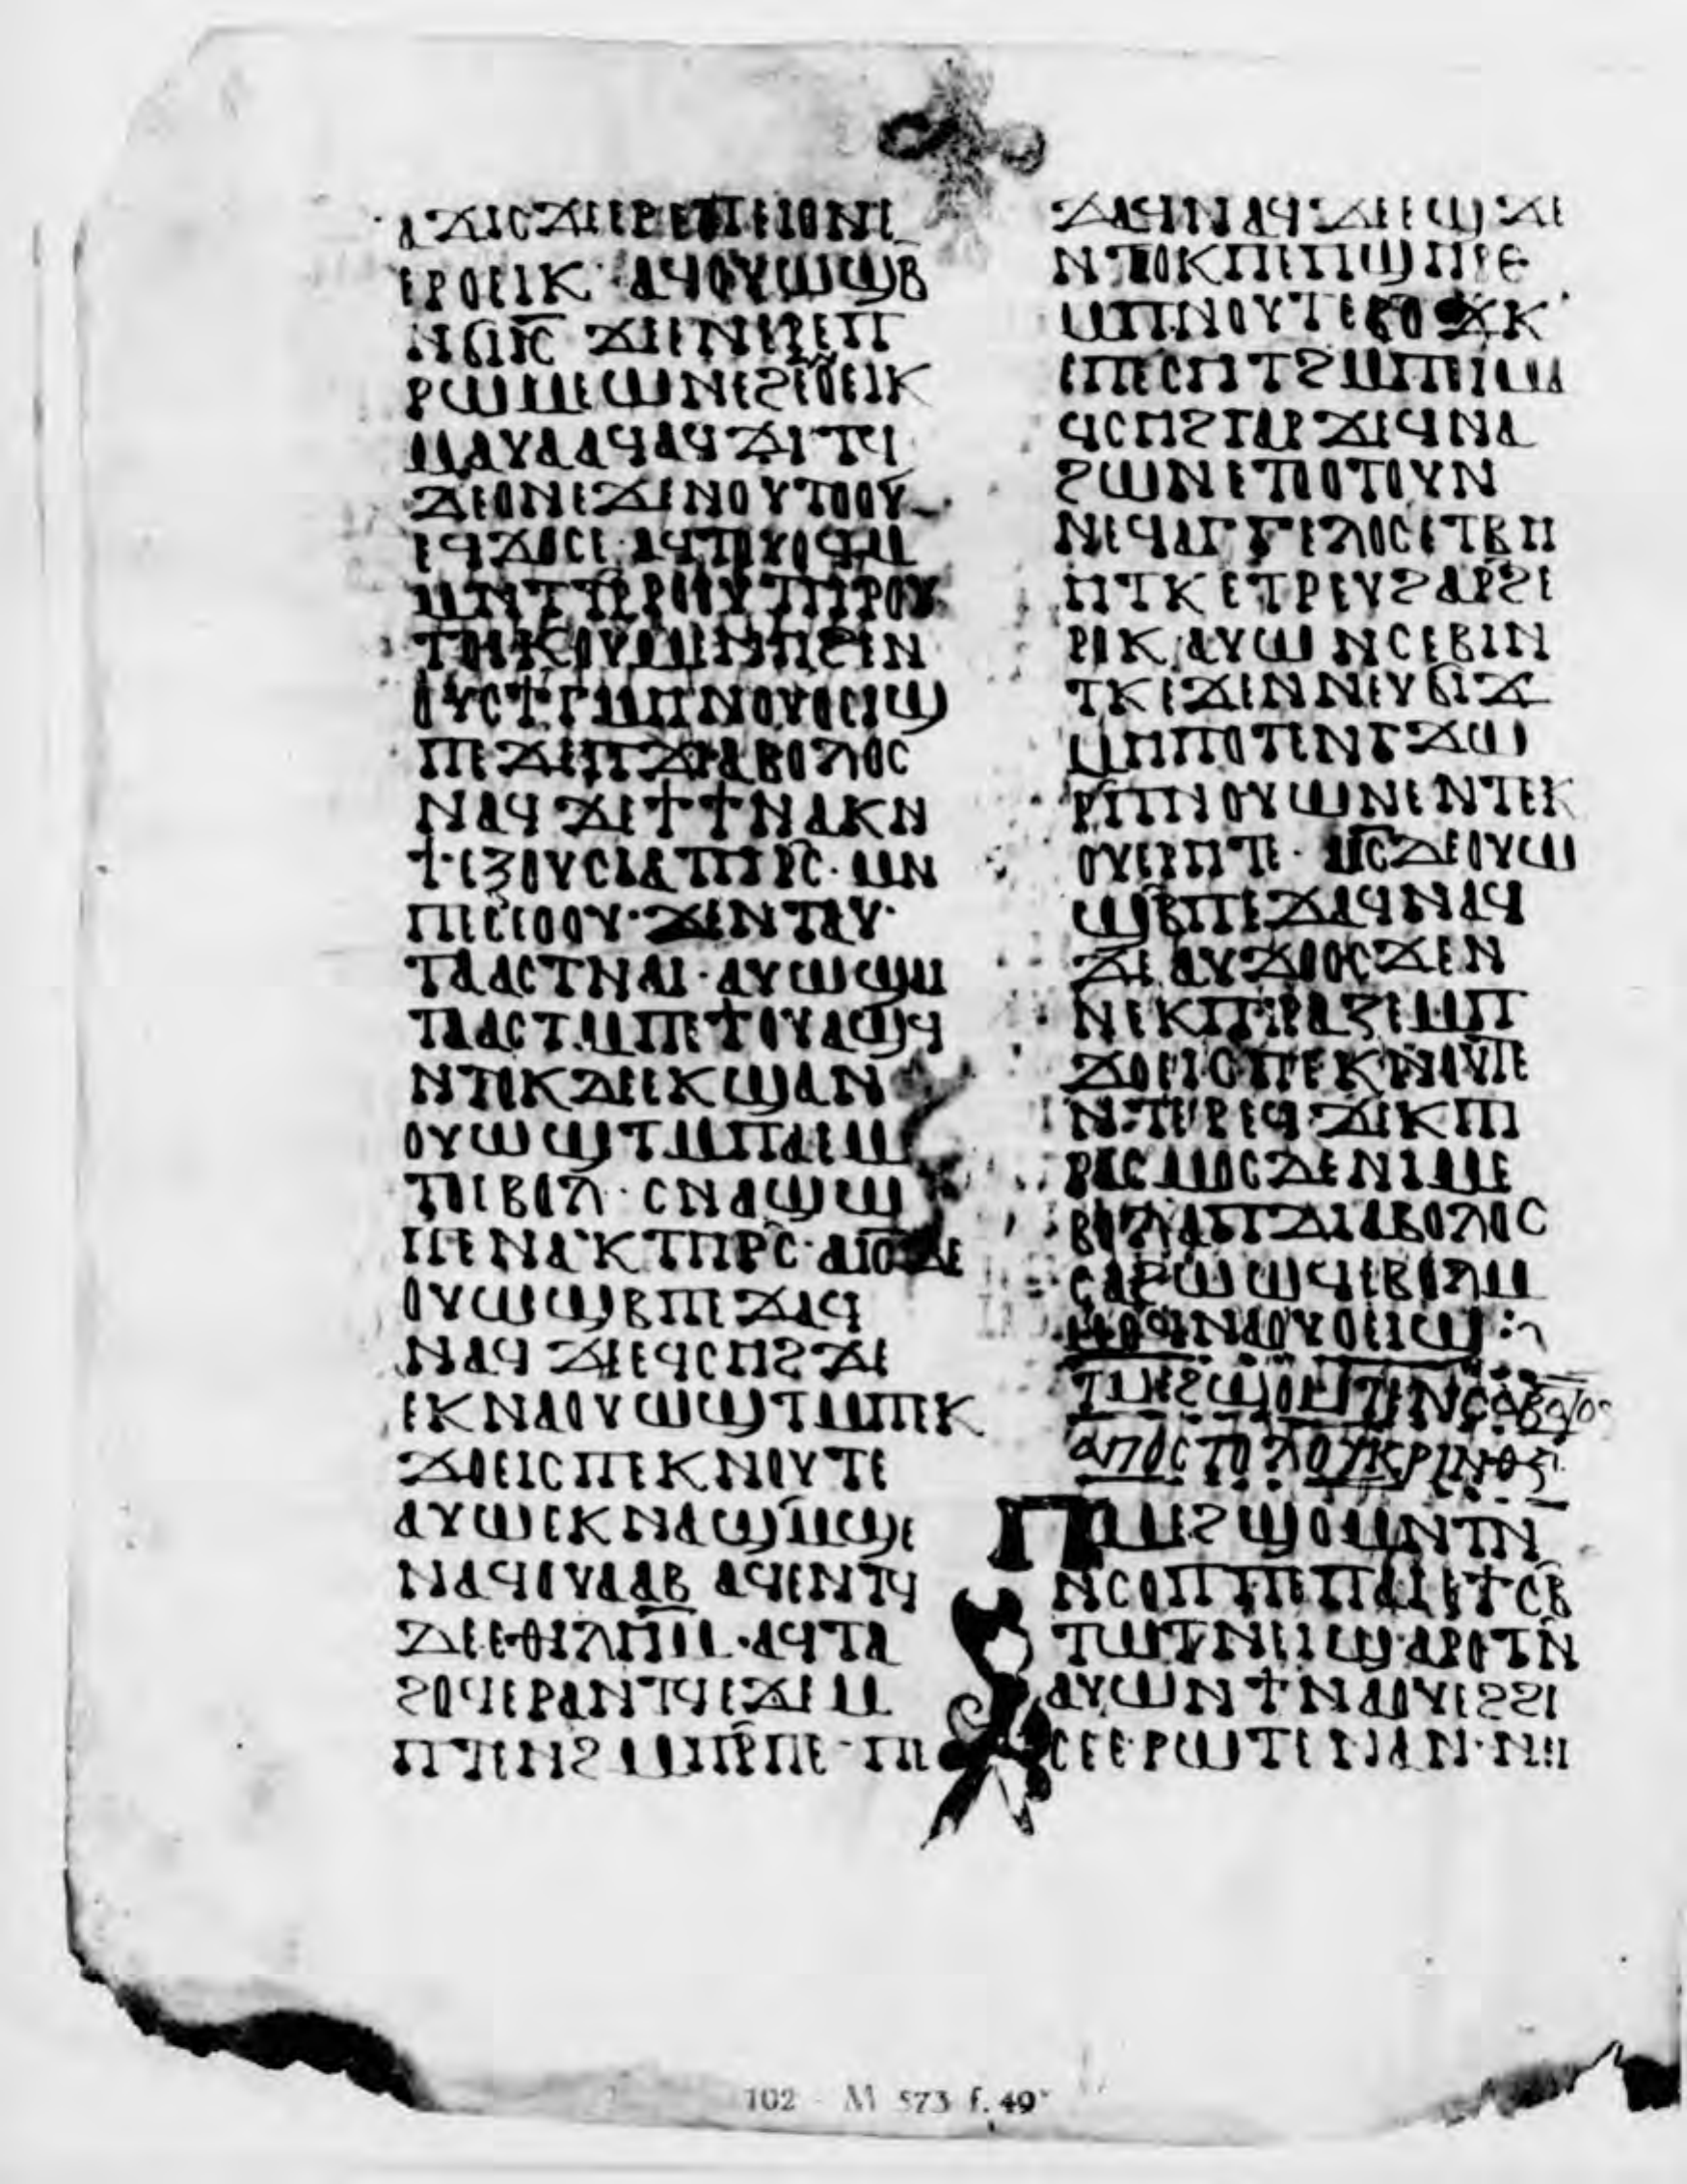 ⲁϫⲓⲥϫⲉⲉⲣⲉⲡⲉⲓⲱⲛⲉ
ⲉⲣⲟⲉⲓⲕ· ⲁϥⲟⲩⲱϣⲃ
ⲛϭⲓⲓ̅ⲥ̅ ϫⲉⲉⲛⲉⲣⲉⲡ
ⲣⲱⲙⲉⲱⲛⲉϩⲉⲟⲉⲓⲕ
ⲙⲁⲩⲁⲁϥⲁϥϫⲓⲧϥ
ⲇⲉⲟⲛⲉϫⲉⲛⲟⲩⲧⲟⲟⲩ
ⲉϥϫⲟⲥⲉ·ⲁϥⲧⲟⲩⲟϥⲙ
ⲙⲛⲧⲣⲣⲱⲟⲩⲧⲏⲣⲟⲩ
ⲧⲟⲓⲕⲟⲩⲙⲉⲛⲏϩⲓⲛ
ⲟⲩⲥϯⲅⲙⲏⲛⲟⲩⲟⲉⲓϣ
ⲡⲉϫⲉⲡⲇⲓⲁⲃⲟⲗⲟⲥ
ⲛⲁϥ ϫⲉϯϯⲛⲁⲕⲛ
ϯⲉⲝⲟⲩⲥⲓⲁⲧⲏⲣⲥ·ⲙⲛ
ⲡⲉⲥⲉⲟⲟⲩ·ϫⲉⲛⲧⲁⲩ·
ⲧⲁⲁⲥⲧⲛⲁⲓ·ⲁⲩⲱϣⲁⲓ
ⲧⲁⲁⲥⲧ.ⲙⲡⲉϯⲟⲩⲁϣϥ
ⲛⲧⲟⲕⲇⲉⲉⲕϣⲁⲛ
ⲟⲩⲱϣⲧⲙⲡⲁⲉⲙ
ⲧⲟⲉⲃⲟⲗ· ⲥⲛⲁϣⲱ
ⲡⲉⲛⲁⲕⲧⲏⲣⲥ·ⲁⲓ̅ⲥ̅ⲇⲉ
ⲟⲩⲱϣⲃⲡⲉϫⲁϥ
ⲛⲁϥ ϫⲉⲉϥⲥⲏϩϫⲉ
ⲉⲕⲛⲁⲟⲩⲱϣⲧⲙⲡⲉⲕ
ϫⲟⲉⲓⲥⲡⲉⲕⲛⲟⲩⲧⲉ
ⲁⲩⲱⲉⲕⲛⲁϣⲙϣⲉ
ⲛⲁϥⲟⲩⲁⲁⲃ ⲁϥⲉⲛⲧϥ
ⲇⲉⲉⲑⲓⲗⲏⲙ·ⲁϥⲧⲁ
ϩⲟϥⲉⲣⲁⲛⲧϥⲉϫⲉⲙ
ⲡⲧⲉⲛϩ ⲙⲡⲣⲡⲉ·ⲡⲉ
ϫⲁϥⲛⲁϥϫⲉⲉϣϫⲉ
ⲛⲧⲟⲕⲡⲉⲡϣⲏⲣⲉ
ⲙⲡⲛⲟⲩⲧⲉϭⲟϫⲕ
ⲉⲡⲉⲥⲏⲧϩⲙⲡⲉⲓⲙⲁ
ϥⲥⲏϩⲅⲁⲣϫⲉϥⲛⲁ
ϩⲱⲛⲉⲧⲟⲟⲧⲟⲩⲛ
ⲛⲉϥⲁⲅⲅⲉⲗⲟⲥⲉⲧⲃⲏ
ⲏⲧⲕ ⲉⲧⲣⲉⲩϩⲁⲣϩⲉ
ⲣⲟⲕ ⲁⲩⲱ ⲛⲥⲉⲃⲓⲛ
ⲧⲕⲉϫⲉⲛⲛⲉⲩϭⲓϫ
ⲙⲏⲡⲟⲧⲉⲛⲅϫⲱ
ⲣⲡⲛⲟⲩⲱⲛⲉⲛⲧⲉⲕ
ⲟⲩⲉⲣⲏⲧⲉ· ⲁⲓ̅ⲥ̅ⲇⲉⲟⲩⲱ
ϣⲃⲡⲉϫⲁϥⲛⲁϥ
ϫⲉ ⲁⲩϫⲟⲟⲥϫⲉⲛ
ⲛⲉⲕⲡⲓⲣⲁⲍⲉⲙⲡ
ϫⲟⲉⲓⲥⲡⲉⲕⲛⲟⲩⲧⲉ
ⲛⲧⲉⲣⲉϥϫⲉⲕⲡⲓ
ⲣⲁⲥⲙⲟⲥⲇⲉⲛⲓⲙⲉ
ⲃⲟⲗⲁⲡⲇⲓⲁⲃⲟⲗⲟⲥ
ⲥⲁϩⲱⲱϥⲉⲃⲟⲗⲙ
ⲙⲟϥϣⲁⲟⲩⲟⲉⲓϣ:
ⲧⲙⲉϩϣⲟⲙⲧⲉⲛⲥⲁⲃⲃⲁⲧⲟⲛ
ⲁⲡⲟⲥⲧⲟⲗⲟⲩⲕⲣⲓⲛⲑ
ⲡⲙⲉϩϣⲟⲙⲛⲧⲛ
ⲛⲥⲟⲡⲡⲉⲡⲁⲓⲉϯⲥⲃ
ⲧⲱⲧⲛⲉⲓⲉⲓϣⲁⲣⲟⲧⲛ
ⲁⲩⲱⲛϯⲛⲁⲟⲩⲉϩϩⲓ
ⲥⲉⲉⲣⲱⲧⲉⲛⲁⲛ·ⲛⲉⲓ
102 - M 573 f. 49ᵛ